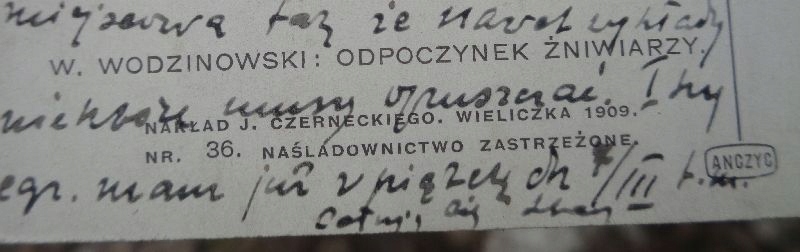 miejscową tak że nawet wykłady
W. WODZINOWSKI: ODPOCZYNEK ŻNIWIARZY.
niektóre muszę opuszczać.
NAKŁAD J. CZERNECKIEGO. WIELICZKA 1909.
NR. 36. NAŚLADOWNICTWO ZASTRZEŻONE.
ANCZYC
egz. mam już w piątek /III b.r.